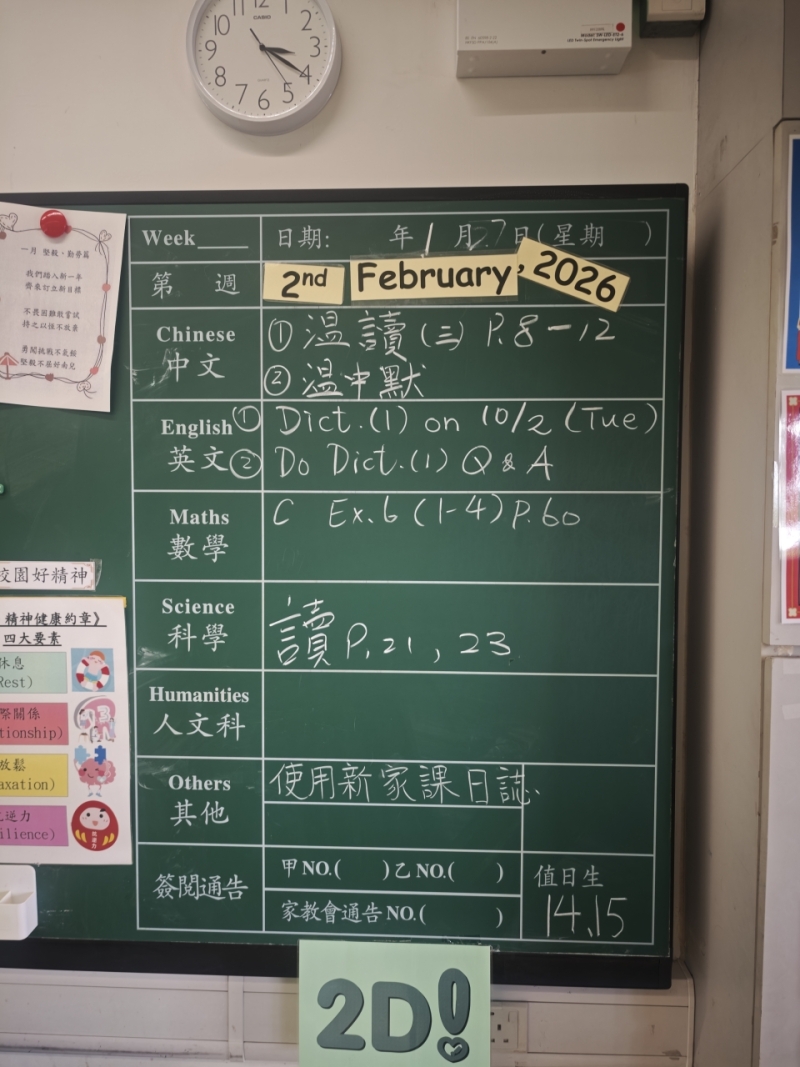 CASIO
12
2
3
4
5
6
7
8
9
10
一月 堅毅·勤勞篇
我們踏入新一年
齊來訂立新目標
不畏困難敢嘗試
持之以恆不放棄
勇闖挑戰不氣餒
堅毅不屈好南兒
Week
日期: 年 1 月 27 日(星期 )
第 週
2nd February, 2026
Chinese
中文
① 溫讀(三) P.8－12
② 溫中默
English
英文
① Dict.(1) on 10/2 (Tue)
② Do Dict.(1) Q & A
Maths
數學
C Ex.6 (1-4) P.60
Science
科學
讀 P.21, 23
Humanities
人文科
Others
其他
使用新家課日誌.
簽閱通告
甲NO.( )乙NO.( )
家教會通告NO.( )
值日生
14、15
校園好精神
精神健康約章》
四大要素
休息
Rest)
際關係
tionship)
放鬆
axation)
逆力
ilience)
2D!